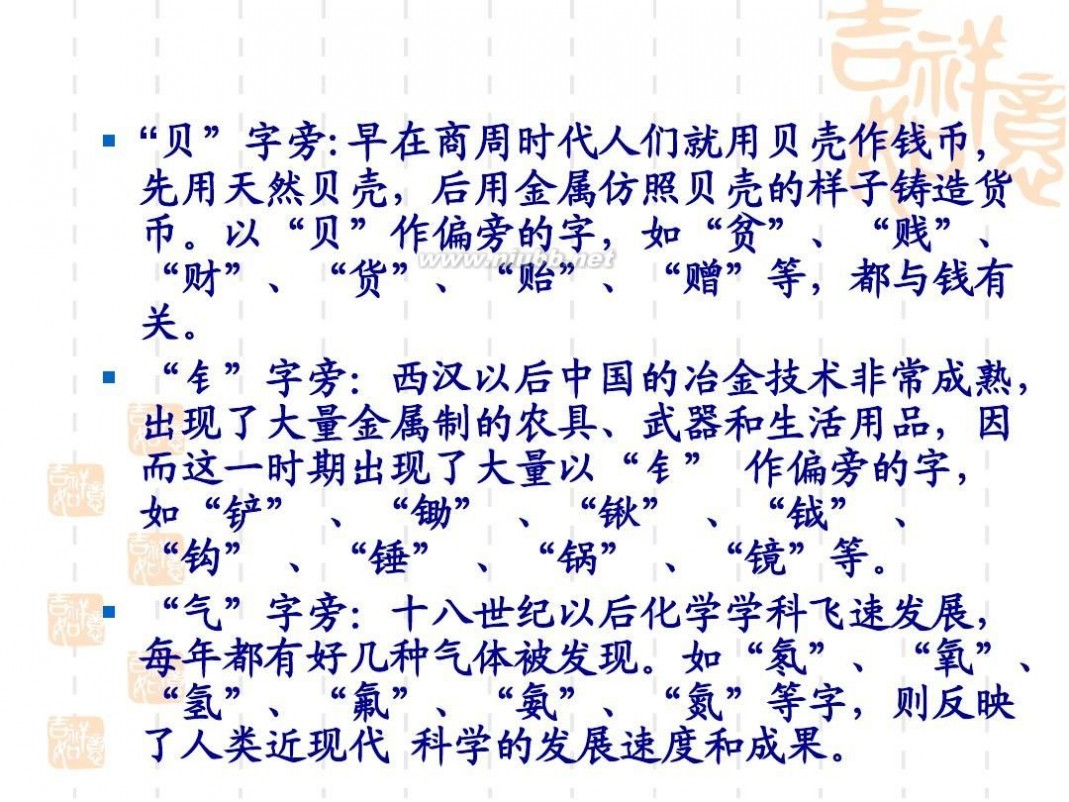 “贝”字旁:早在商周时代人们就用贝壳作钱币，
先用天然贝壳，后用金属仿照贝壳的样子铸造货
币。以“贝”作偏旁的字，如“贫”、“贱”、
“财”、“货”、“贻”、“赠”等，都与钱有
关。
“钅”字旁：西汉以后中国的冶金技术非常成熟，
出现了大量金属制的农具、武器和生活用品，因
而这一时期出现了大量以“钅” 作偏旁的字，
如“铲” 、“锄” 、“锹” 、“钺” 、
“钩” 、“锤” 、“锅” 、“镜”等。
“气”字旁：十八世纪以后化学学科飞速发展，
每年都有好几种气体被发现。如“氡”、“氧”、
“氢”、“氟”、“氨”、“氮”等字，则反映
了人类近现代 科学的发展速度和成果。
www.niubb.net
吉祥如意
吉祥如意
吉祥如意
吉祥如意
吉祥如意
吉祥如意
吉祥如意